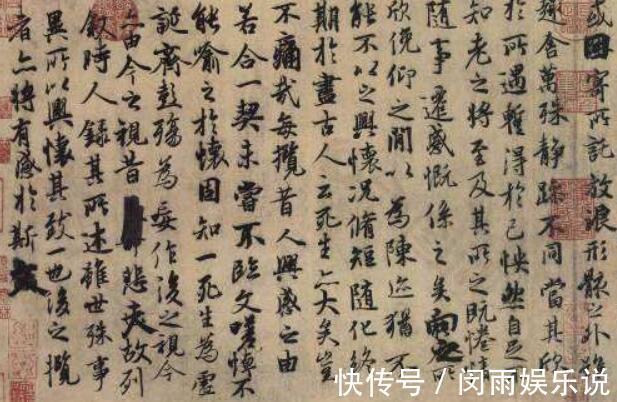 或因寄所託放浪形骸之外雖
趣舍萬殊靜躁不同當其欣
於所遇暫得於己怏然自足不
知老之將至及其所之既惓情
隨事遷感慨係之矣向之所
欣俛仰之閒以為陳迹猶不
能不以之興懷況脩短隨化終
期於盡古人云死生亦大矣豈
不痛哉每攬昔人興感之由
若合一契未嘗不臨文嗟悼不
能喻之於懷固知一死生為虛
誕齊彭殤為妄作後之視今
亦由今之視昔悲夫故列
敘時人錄其所述雖世殊事
異所以興懷其致一也後之攬
者亦將有感於斯文
快传号 / 闵雨娱乐说